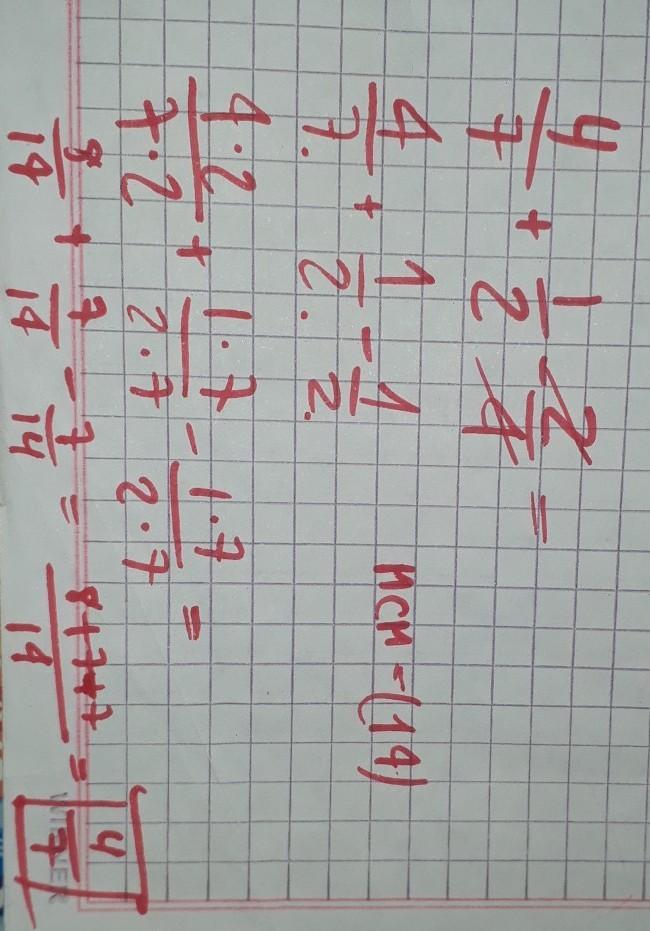 4/7 + 1/2 - 2/4 =
4/7. + 1/2. - 1/2. мсм = (14)
4·2/7·2 + 1·7/2·7 - 1·7/2·7 =
8/14 + 7/14 - 7/14 = 8+7-7/14 = 4/7